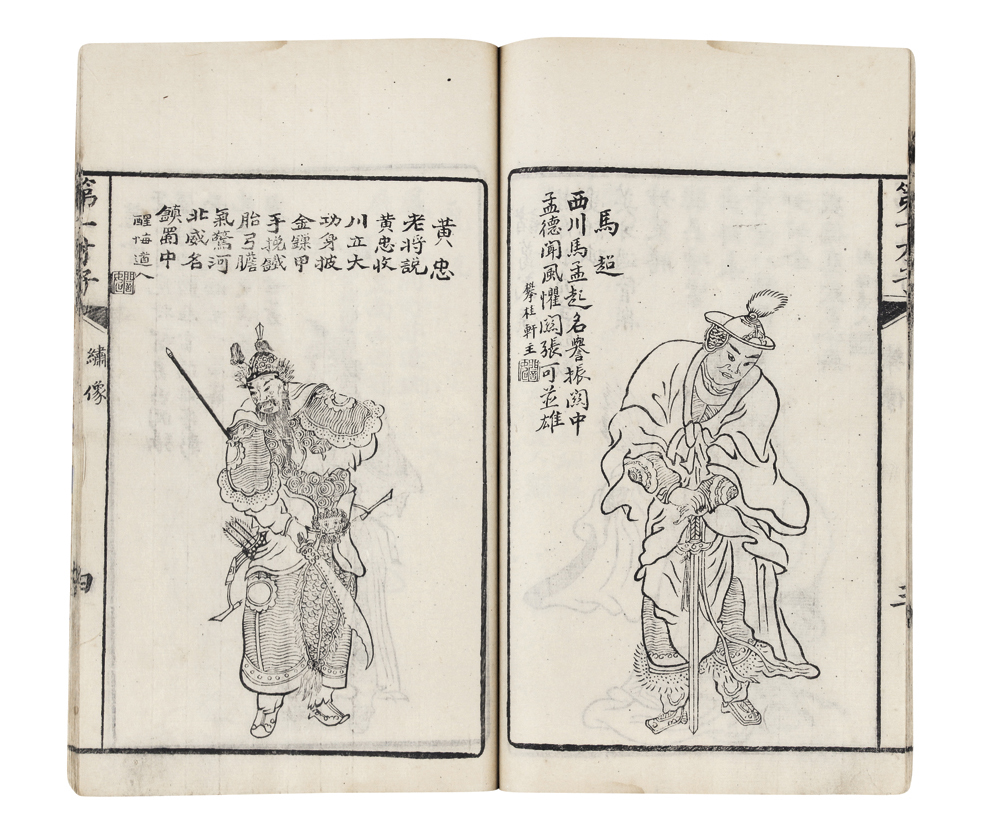 馬超
西川馬孟起名譽振関中
孟德聞風懼関張可並雄
攀桂軒主
三
黃忠
老將說
黃忠收
川立大
功身披
金鏁甲
手挽鐵
胎弓膽
氣驚河
北威名
鎮蜀中
醒悔道人
第一才子
繡像
四